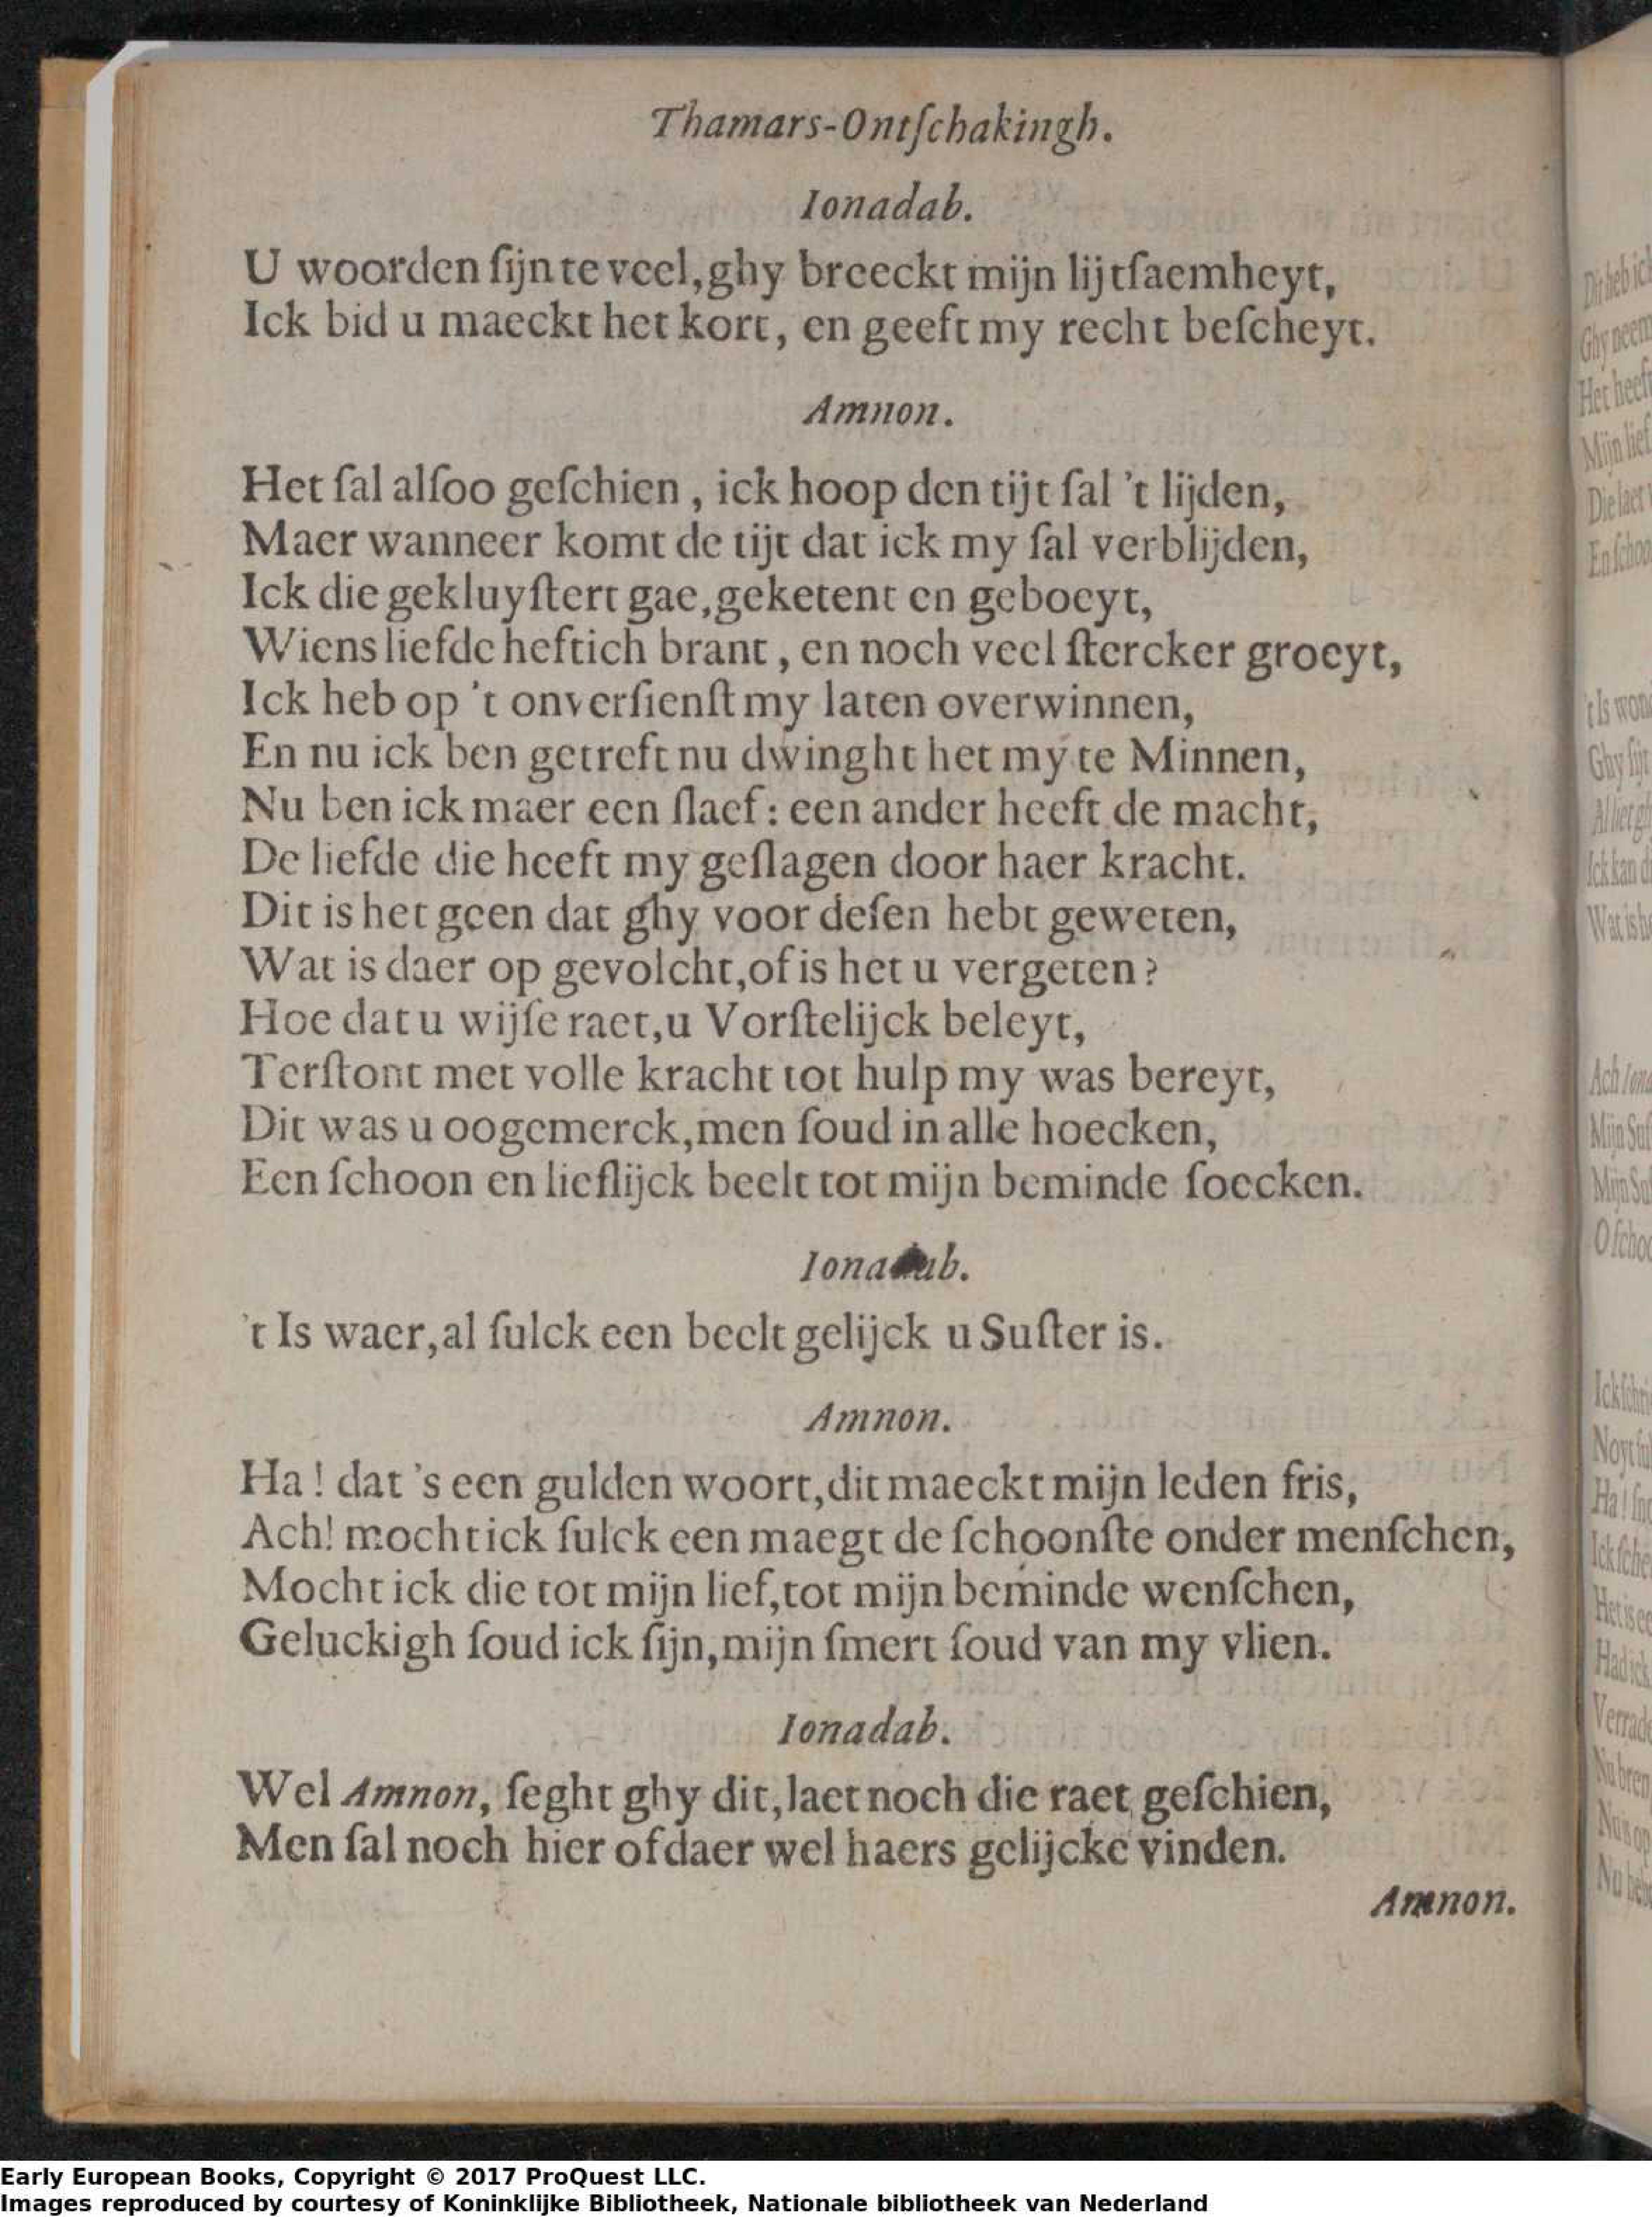 Thamars-Ontſchakingh.
Ionadab.
U woorden ſijn te veel, ghy breeckt mijn lijtſaemheyt,
Ick bid u maeckt het kort, en geeft my recht beſcheyt.
Amnon.
Het ſal alſoo geſchien, ick hoop den tijt ſal 't lijden,
Maer wanneer komt de tijt dat ick my ſal verblijden,
Ick die gekluyſtert gae, geketent en geboeyt,
Wiens liefde heftich brant, en noch veel ſtercker groeyt,
Ick heb op 't onverſienſt my laten overwinnen,
En nu ick ben getreft nu dwinght het my te Minnen,
Nu ben ick maer een ſlaef: een ander heeft de macht,
De liefde die heeft my geſlagen door haer kracht.
Dit is het geen dat ghy voor deſen hebt geweten,
Wat is daer op gevolcht, of is het u vergeten?
Hoe dat u wijſe raet, u Vorſtelijck beleyt,
Terſtont met volle kracht tot hulp my was bereyt,
Dit was u oogemerck, men ſoud in alle hoecken,
Een ſchoon en lieflijck beelt tot mijn beminde ſoecken.
Ionadab.
't Is waer, al ſulck een beelt gelijck u Suſter is.
Amnon.
Ha! dat 's een gulden woort, dit maeckt mijn leden fris,
Ach! mocht ick ſulck een maegt de ſchoonſte onder menſchen,
Mocht ick die tot mijn lief, tot mijn beminde wenſchen,
Geluckigh ſoud ick ſijn, mijn ſmert ſoud van my vlien.
Ionadab.
Wel Amnon, ſeght ghy dit, laet noch die raet geſchien,
Men ſal noch hier of daer wel haers gelijcke vinden.
Amnon.
Early European Books, Copyright © 2017 ProQuest LLC.
Images reproduced by courtesy of Koninklijke Bibliotheek, Nationale bibliotheek van Nederland